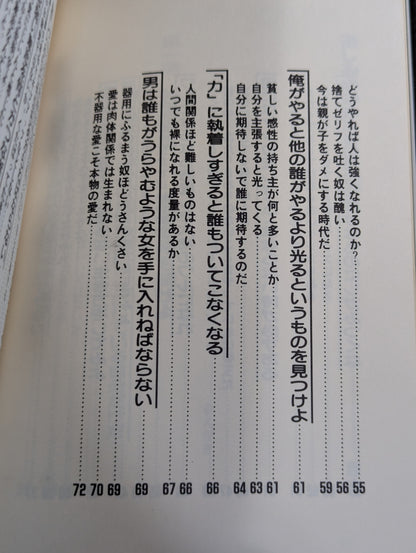 どうやれば人は強くなれるのか?……55
捨てゼリフを吐く奴は醜い……56
今は親が子をダメにする時代だ……59
俺がやると他の誰がやるより光るというものを見つけよ……61
貧しい感性の持ち主が何と多いことか……61
自分を主張すると光ってくる……63
自分に期待しないで誰に期待するのだ……64
「力」に執着しすぎると誰もついてこなくなる……66
人間関係ほど難しいものはない……66
いつでも裸になれる度量があるか……67
男は誰もがうらやむような女を手に入れねばならない……69
器用にふるまう奴ほどうさんくさい……69
愛は肉体関係では生まれない……70
不器用な愛こそ本物の愛だ……72